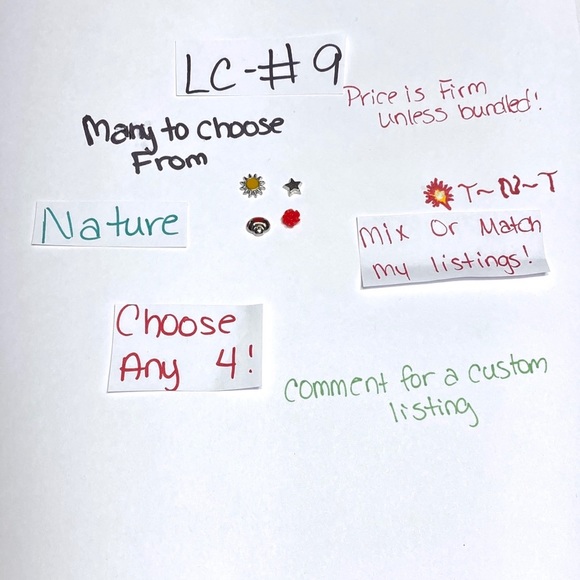 LC-#9
Price is Firm
unless bundled!
Many to choose
From
T~N~T
Nature
Mix Or Match
my listings!
Choose
Any 4!
Comment for a custom
listing